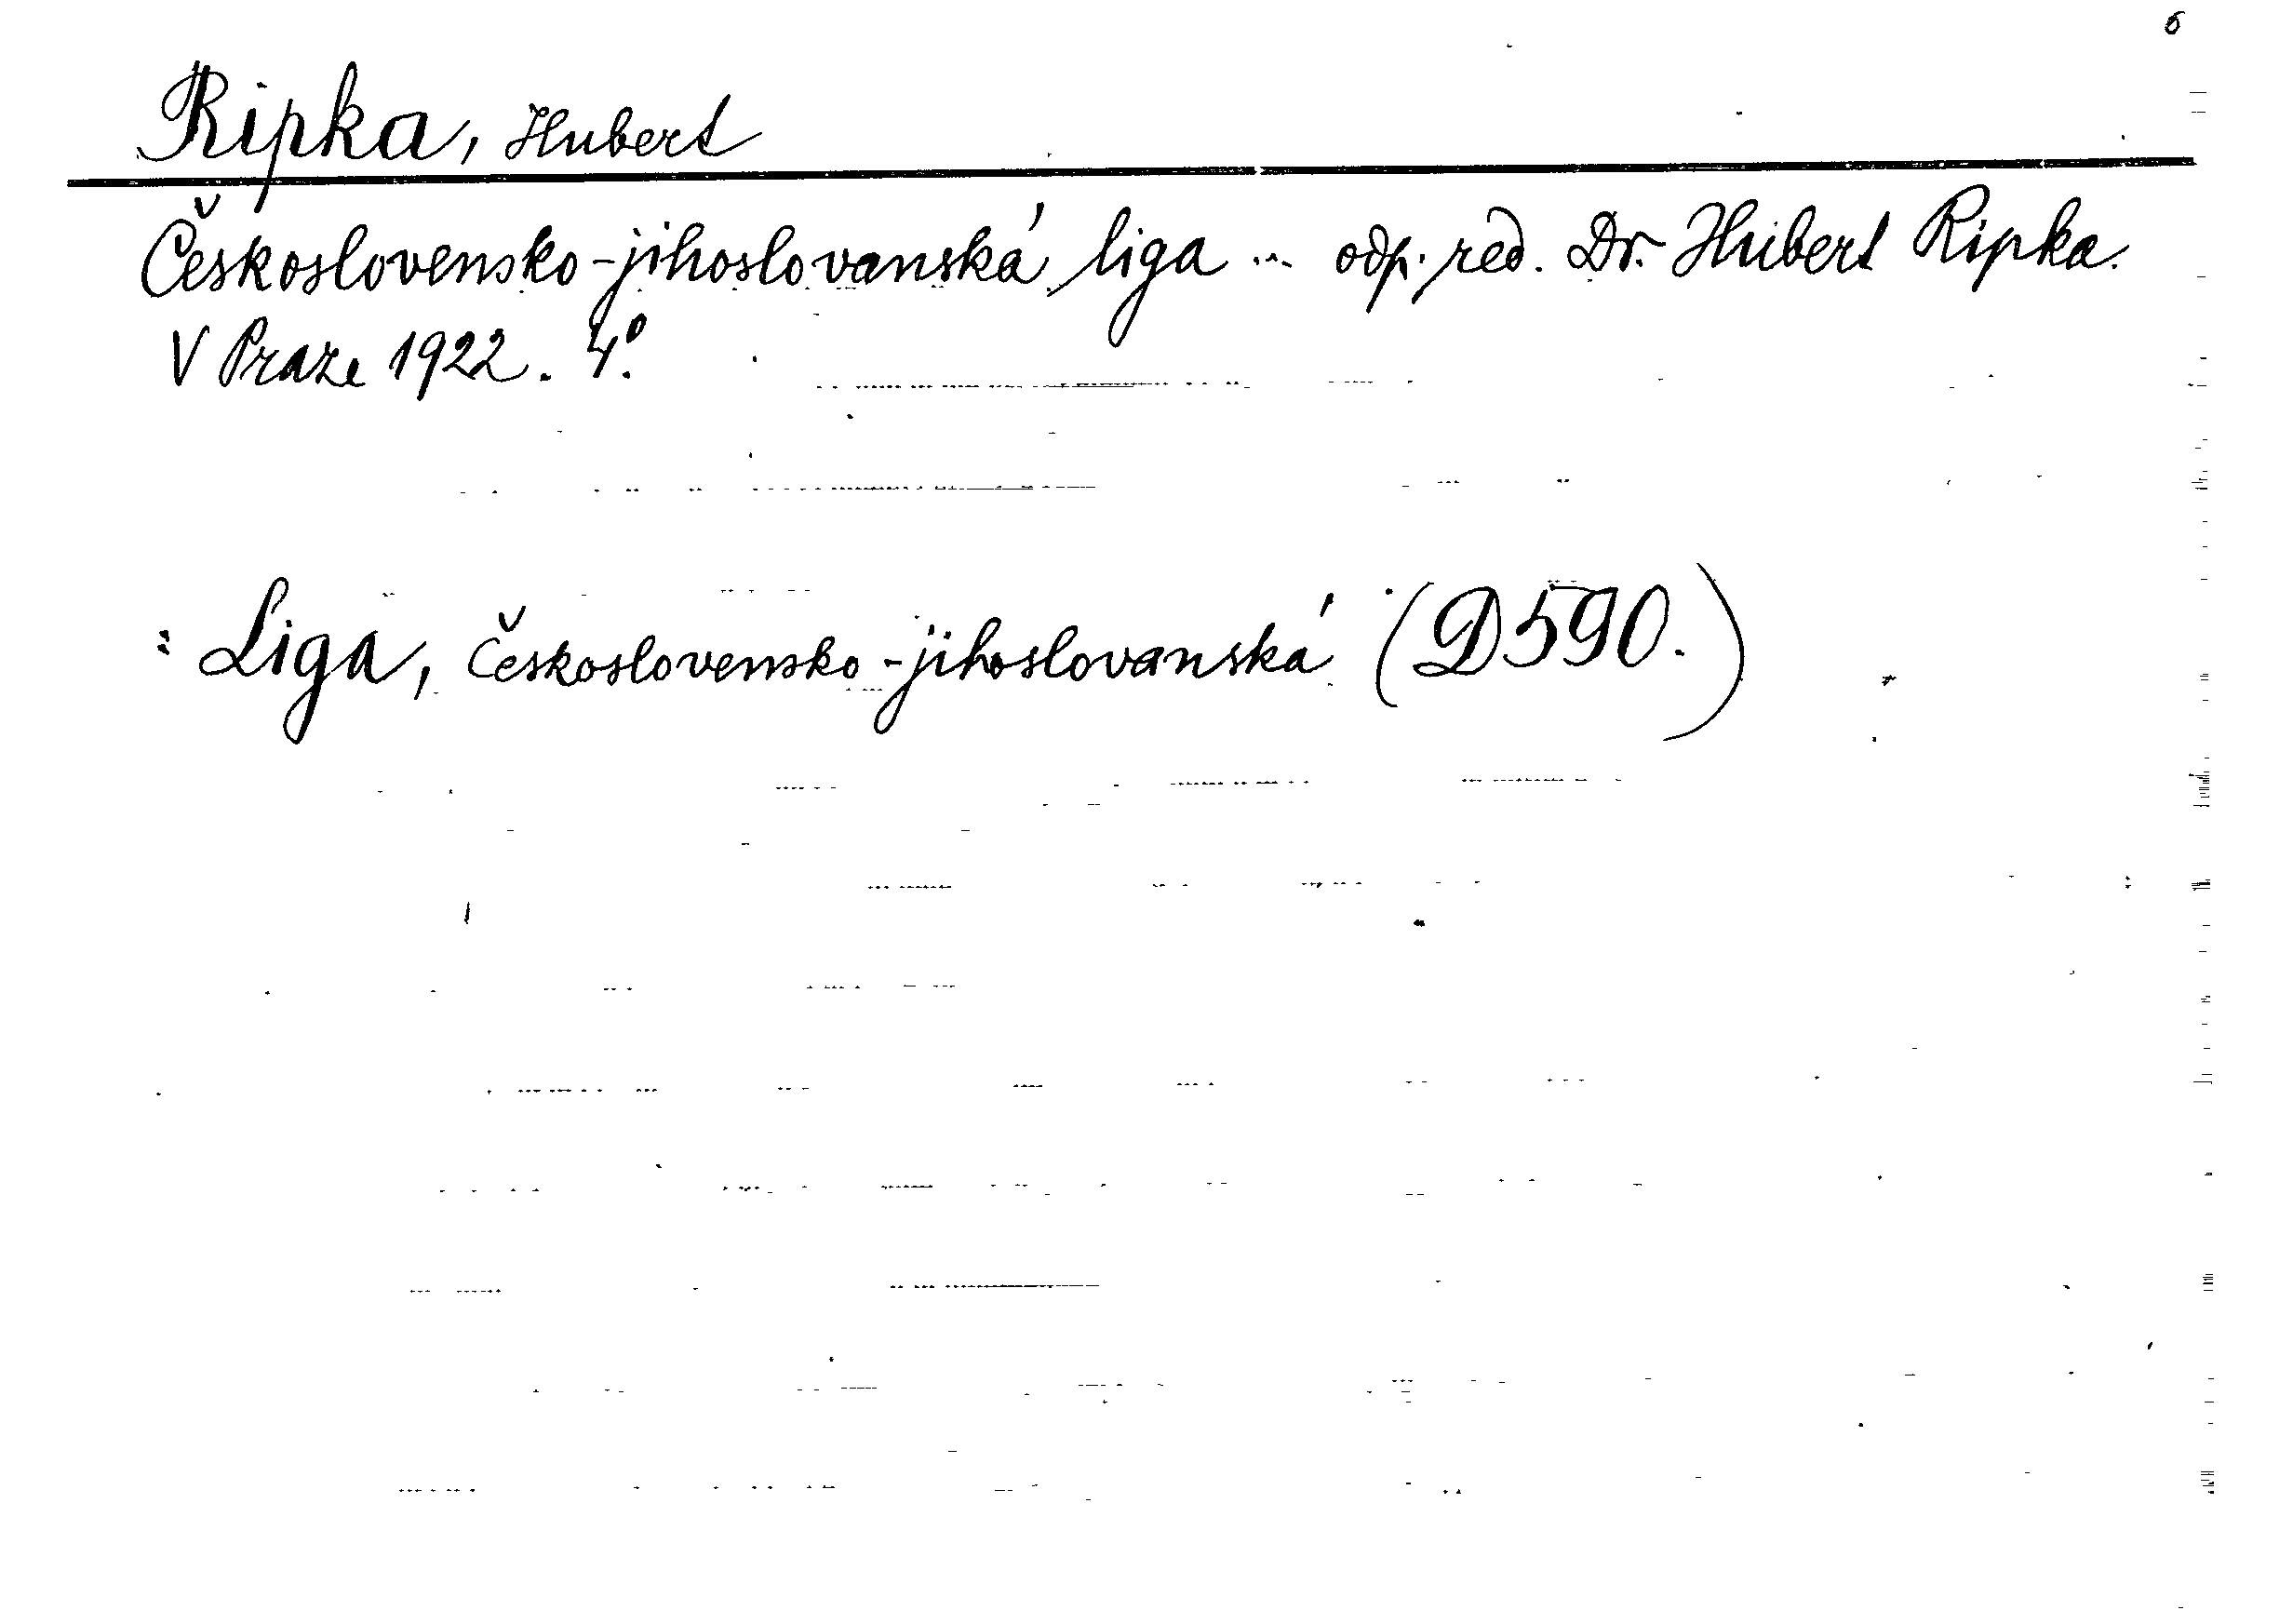 6
Ripka, Hubert
Československo-jihoslovanská liga ... odp. red. Dr. Hubert Ripka.
V Praze 1922. 4°.
: Liga, Československo-jihoslovanská (D590.)